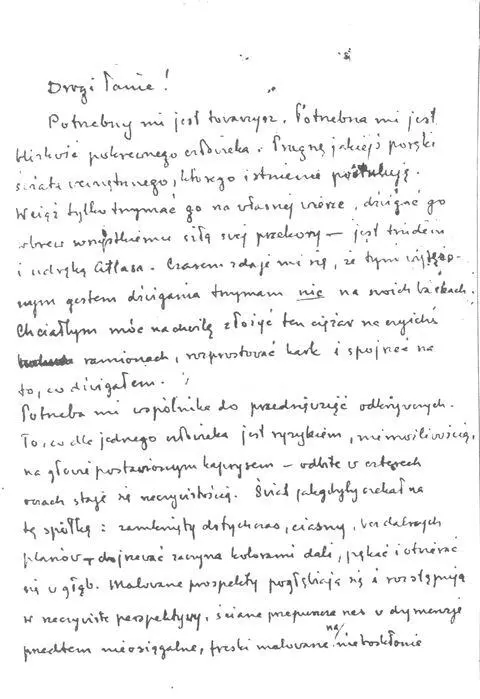 Drogi Panie!
Potrzebny mi jest towarzysz. Potrzebna mi jest
bliskość pokrewnego człowieka. Pragnę jakiejś poręki
świata wewnętrznego, którego istnienie postuluję.
Wciąż tylko trzymać go na własnej wierze, dźwigać go
wbrew wszystkiemu siłą swej przekory — jest trudem
i udręką Atlasa. Czasem zdaje mi się, że tym wytężo-
nym gestem dźwigania trzymam nic na swoich barkach.
Chciałbym móc na chwilę złożyć ten ciężar na czyichś
ramionach, rozprostować kark i spojrzeć na
to, co dźwigałem.
Potrzeba mi wspólnika do przedsięwzięć odkrywczych.
To, co dla jednego człowieka jest ryzykiem, niemożliwością,
na głowie postawionym kaprysem — odbite w czterech
oczach staje się rzeczywistością. Świat jakgdyby czekał na
tę spółkę: zamknięty dotychczas, ciasny, bez dalszych
planów — dojrzewać zaczyna kolorami dali, pękać i otwierać
się w głąb. Malowane prospekty pogłębiają się i rozstępują
w rzeczywiste perspektywy, ściana przepuszcza nas w dymensje
przedtem nieosiągalne, freski malowane na nieboskłonie